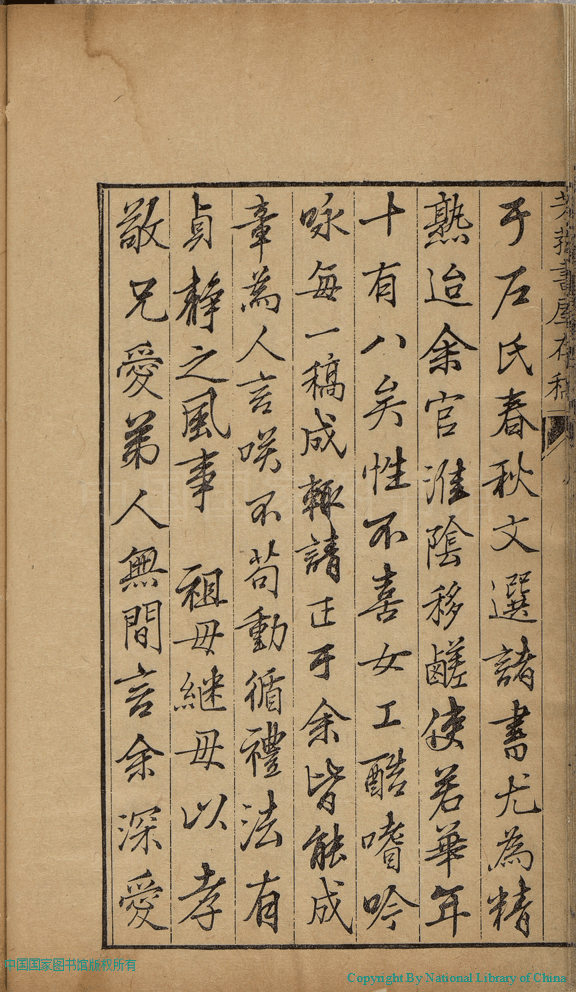 于左氏春秋文選諸書尤為精
熟迨余官淮陰移鹺使若華年
十有八矣性不喜女工酷嗜吟
咏每一稿成輙請正于余皆能成
章為人言咲不苟動循禮法有
貞靜之風事 祖母繼母以孝
敬兄愛弟人無間言余深愛
書屋存稿
中国国家图书馆版权所有
Copyright By National Library of China